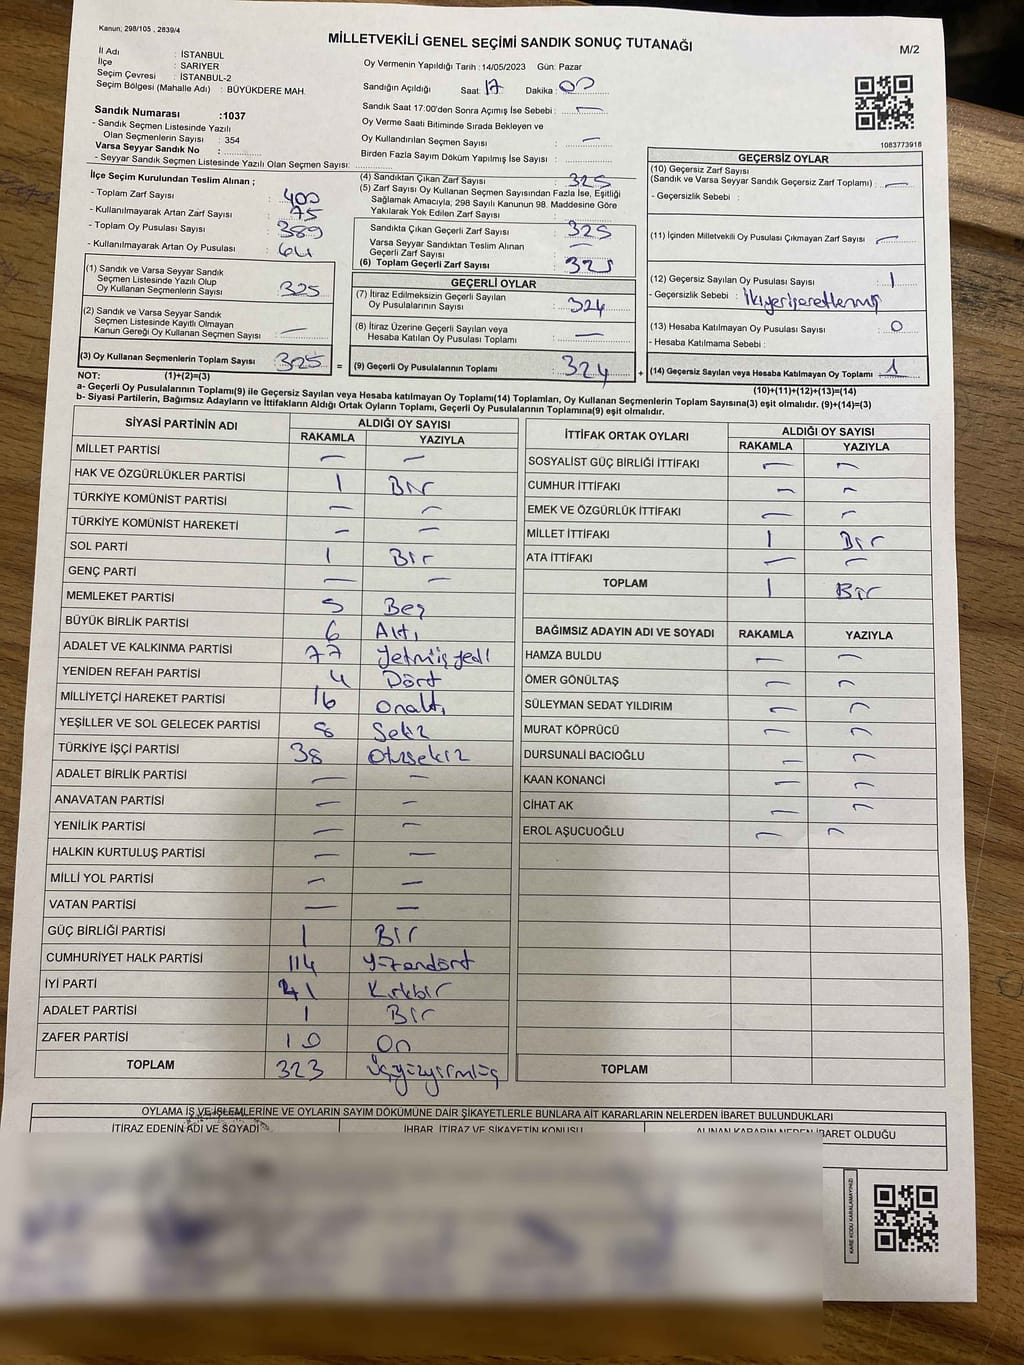 Kanun; 298/105 , 2839/4
MİLLETVEKİLİ GENEL SEÇİMİ SANDIK SONUÇ TUTANAĞI
M/2
İl Adı : İSTANBUL
İlçe : SARIYER
Seçim Çevresi : İSTANBUL-2
Seçim Bölgesi (Mahalle Adı) : BÜYÜKDERE MAH.
Oy Vermenin Yapıldığı Tarih : 14/05/2023 Gün: Pazar
Sandığın Açıldığı Saat: 17 Dakika: 00
Sandık Saat 17:00'den Sonra Açımış İse Sebebi : —
Oy Verme Saati Bitiminde Sırada Bekleyen ve
Oy Kullandırılan Seçmen Sayısı : —
Birden Fazla Sayım Döküm Yapılmış İse Sayısı :
1083773916
Sandık Numarası :1037
- Sandık Seçmen Listesinde Yazılı
Olan Seçmenlerin Sayısı : 354
Varsa Seyyar Sandık No :
- Seyyar Sandık Seçmen Listesinde Yazılı Olan Seçmen Sayısı:
İlçe Seçim Kurulundan Teslim Alınan ;
- Toplam Zarf Sayısı : 400
- Kullanılmayarak Artan Zarf Sayısı : 75
- Toplam Oy Pusulası Sayısı : 389
- Kullanılmayarak Artan Oy Pusulası : 64
(1) Sandık ve Varsa Seyyar Sandık
Seçmen Listesinde Yazılı Olup
Oy Kullanan Seçmenlerin Sayısı : 325
(2) Sandık ve Varsa Seyyar Sandık
Seçmen Listesinde Kayıtlı Olmayan
Kanun Gereği Oy Kullanan Seçmen Sayısı : —
(3) Oy Kullanan Seçmenlerin Toplam Sayısı 325 =
(4) Sandıktan Çıkan Zarf Sayısı : 325
(5) Zarf Sayısı Oy Kullanan Seçmen Sayısından Fazla İse, Eşitliği
Sağlamak Amacıyla; 298 Sayılı Kanunun 98. Maddesine Göre
Yakılarak Yok Edilen Zarf Sayısı :
Sandıkta Çıkan Geçerli Zarf Sayısı : 325
Varsa Seyyar Sandıktan Teslim Alınan
Geçerli Zarf Sayısı : —
(6) Toplam Geçerli Zarf Sayısı : 325
GEÇERLİ OYLAR
(7) İtiraz Edilmeksizin Geçerli Sayılan
Oy Pusulalarının Sayısı : 324
(8) İtiraz Üzerine Geçerli Sayılan veya
Hesaba Katılan Oy Pusulası Toplamı : —
(9) Geçerli Oy Pusulalarının Toplamı : 324 +
GEÇERSİZ OYLAR
(10) Geçersiz Zarf Sayısı
(Sandık ve Varsa Seyyar Sandık Geçersiz Zarf Toplamı) : —
- Geçersizlik Sebebi :
(11) İçinden Milletvekili Oy Pusulası Çıkmayan Zarf Sayısı : —
(12) Geçersiz Sayılan Oy Pusulası Sayısı : 1
- Geçersizlik Sebebi : İki yer işaretlenmiş
(13) Hesaba Katılmayan Oy Pusulası Sayısı : 0
- Hesaba Katılmama Sebebi :
(14) Geçersiz Sayılan veya Hesaba Katılmayan Oy Toplamı : 1
NOT: (1)+(2)=(3)
(10)+(11)+(12)+(13)=(14)
a- Geçerli Oy Pusulalarının Toplamı(9) ile Geçersiz Sayılan veya Hesaba katılmayan Oy Toplamı(14) Toplamları, Oy Kullanan Seçmenlerin Toplam Sayısına(3) eşit olmalıdır. (9)+(14)=(3)
b- Siyasi Partilerin, Bağımsız Adayların ve İttifakların Aldığı Ortak Oyların Toplamı, Geçerli Oy Pusulalarının Toplamına(9) eşit olmalıdır.
SİYASİ PARTİNİN ADI ALDIĞI OY SAYISI
RAKAMLA YAZIYLA
MİLLET PARTİSİ — —
HAK VE ÖZGÜRLÜKLER PARTİSİ 1 Bir
TÜRKİYE KOMÜNİST PARTİSİ — —
TÜRKİYE KOMÜNİST HAREKETİ — —
SOL PARTİ 1 Bir
GENÇ PARTİ — —
MEMLEKET PARTİSİ 5 Beş
BÜYÜK BİRLİK PARTİSİ 6 Altı
ADALET VE KALKINMA PARTİSİ 77 Yetmişyedi
YENİDEN REFAH PARTİSİ 4 Dört
MİLLİYETÇİ HAREKET PARTİSİ 16 Onaltı
YEŞİLLER VE SOL GELECEK PARTİSİ 8 Sekiz
TÜRKİYE İŞÇİ PARTİSİ 38 Otuzsekiz
ADALET BİRLİK PARTİSİ — —
ANAVATAN PARTİSİ — —
YENİLİK PARTİSİ — —
HALKIN KURTULUŞ PARTİSİ — —
MİLLİ YOL PARTİSİ — —
VATAN PARTİSİ — —
GÜÇ BİRLİĞİ PARTİSİ 1 Bir
CUMHURİYET HALK PARTİSİ 114 Yüzondört
İYİ PARTİ 41 Kırkbir
ADALET PARTİSİ 1 Bir
ZAFER PARTİSİ 10 On
TOPLAM 323 Üçyüzyirmiüç
İTTİFAK ORTAK OYLARI ALDIĞI OY SAYISI
RAKAMLA YAZIYLA
SOSYALİST GÜÇ BİRLİĞİ İTTİFAKI — —
CUMHUR İTTİFAKI — —
EMEK VE ÖZGÜRLÜK İTTİFAKI — —
MİLLET İTTİFAKI 1 Bir
ATA İTTİFAKI — —
TOPLAM 1 Bir
BAĞIMSIZ ADAYIN ADI VE SOYADI RAKAMLA YAZIYLA
HAMZA BULDU — —
ÖMER GÖNÜLTAŞ — —
SÜLEYMAN SEDAT YILDIRIM — —
MURAT KÖPRÜCÜ — —
DURSUNALİ BACIOĞLU — —
KAAN KONANCİ — —
CİHAT AK — —
EROL AŞUCUOĞLU — —
TOPLAM
OYLAMA İŞ VE İŞLEMLERİNE VE OYLARIN SAYIM DÖKÜMÜNE DAİR ŞİKAYETLERLE BUNLARA AİT KARARLARIN NELERDEN İBARET BULUNDUKLARI
İTİRAZ EDENİN ADI VE SOYADI İHBAR, İTİRAZ VE ŞİKAYETİN KONUSU ALINAN KARARIN NEDEN İBARET OLDUĞU
KARE KODU KARALAMAYINIZ!